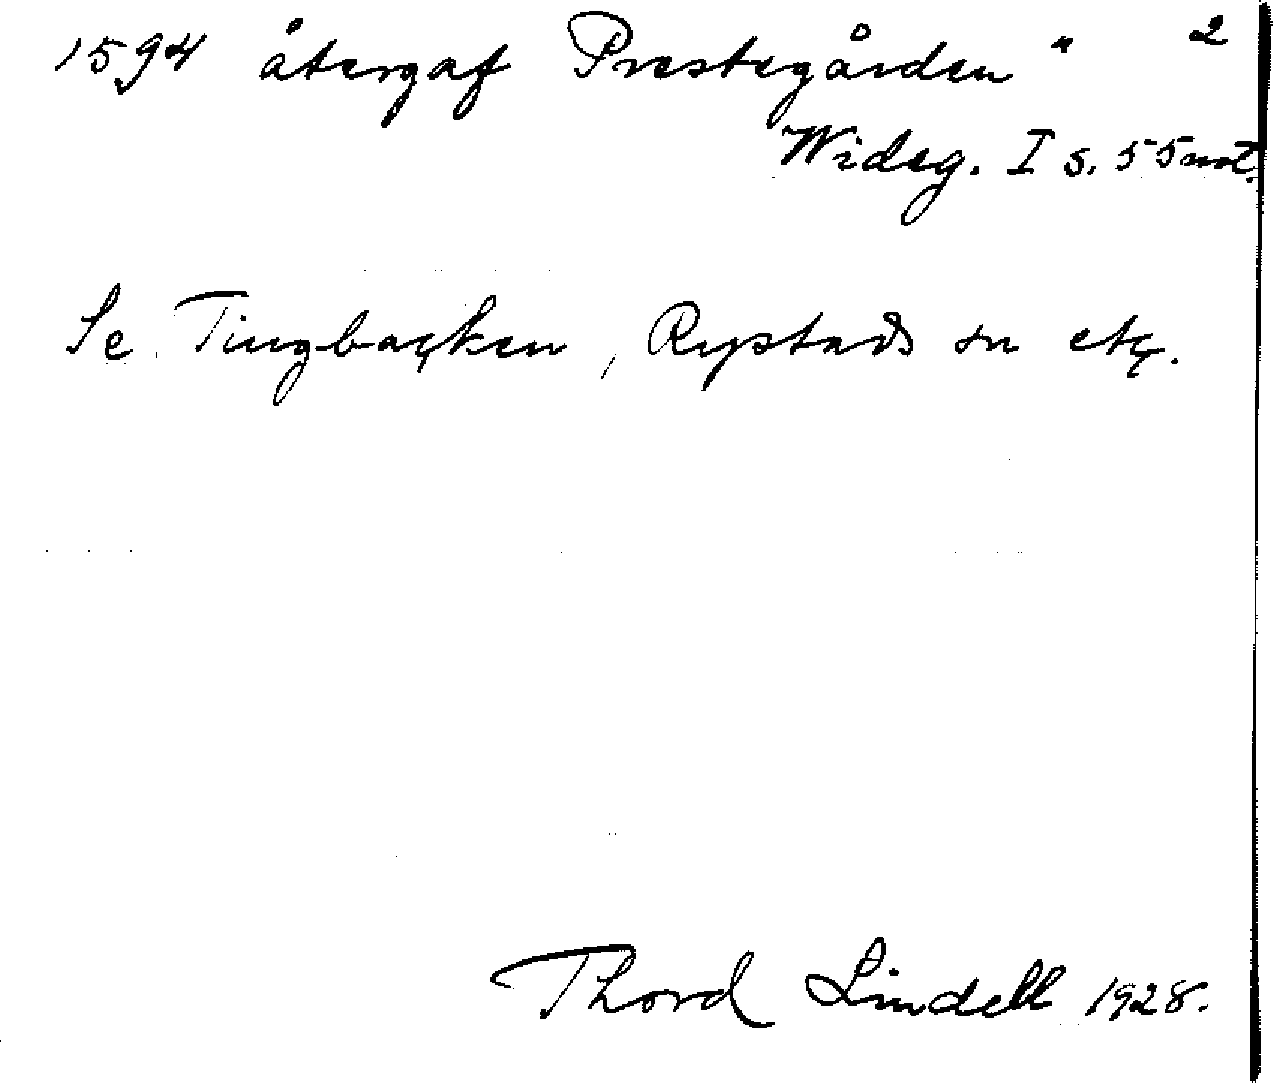 1594 återgaf Prestegården" 2
Wideg. I s. 55 not.
Se Tingbacken, Rystads sn etc.
Thord Lindell 1928.